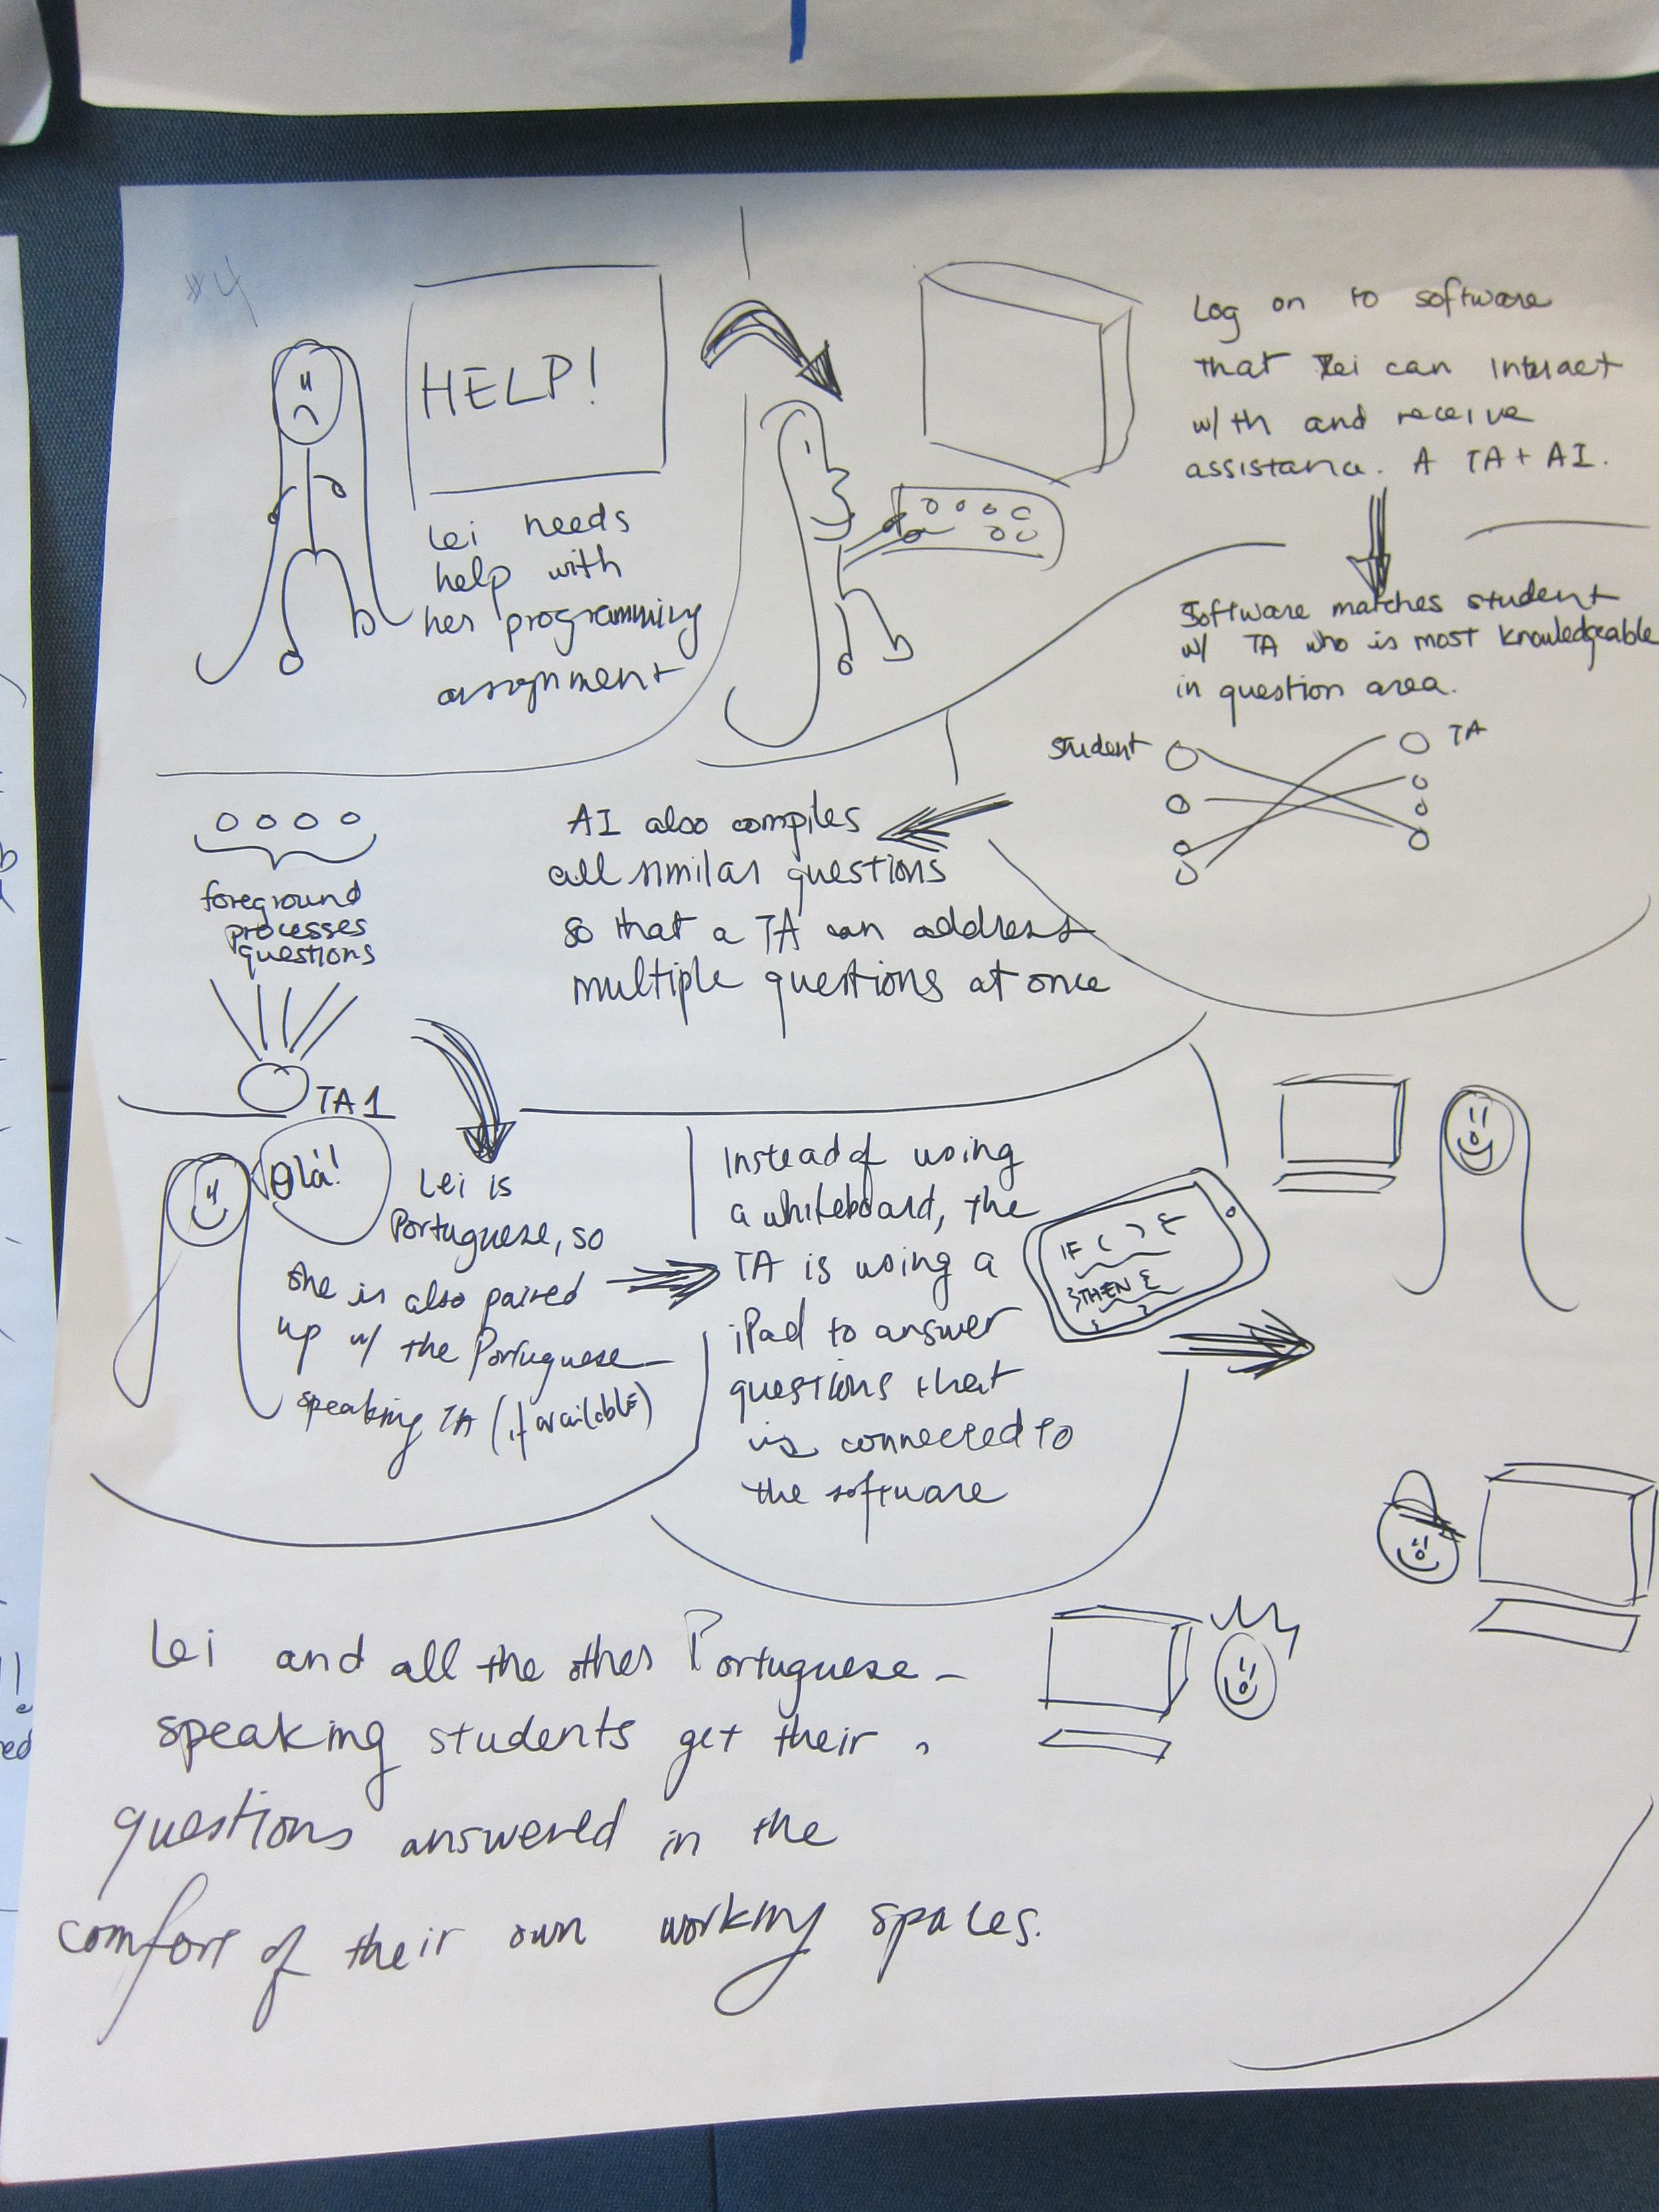 #4
HELP!
Lei needs
help with
her programming
assignment
Log on to software
that Lei can interact
w/th and receive
assistance. A TA + AI.
Software matches student
w/ TA who is most knowledgeable
in question area.
student
TA
AI also compiles
all similar questions
so that a TA can address
multiple questions at once
foreground
processes
questions
TA1
Olá!
Lei is
Portuguese, so
she is also paired
up w/ the Portuguese-
speaking TA (if available)
Instead of using
a whiteboard, the
TA is using a
iPad to answer
questions that
is connected to
the software
IF ( ) {
}THEN {
}
Lei and all the other Portuguese-
speaking students get their
questions answered in the
comfort of their own working spaces.